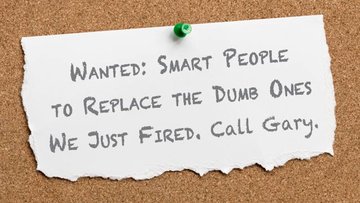 Wanted: Smart People
to Replace the Dumb Ones
We Just Fired. Call Gary.